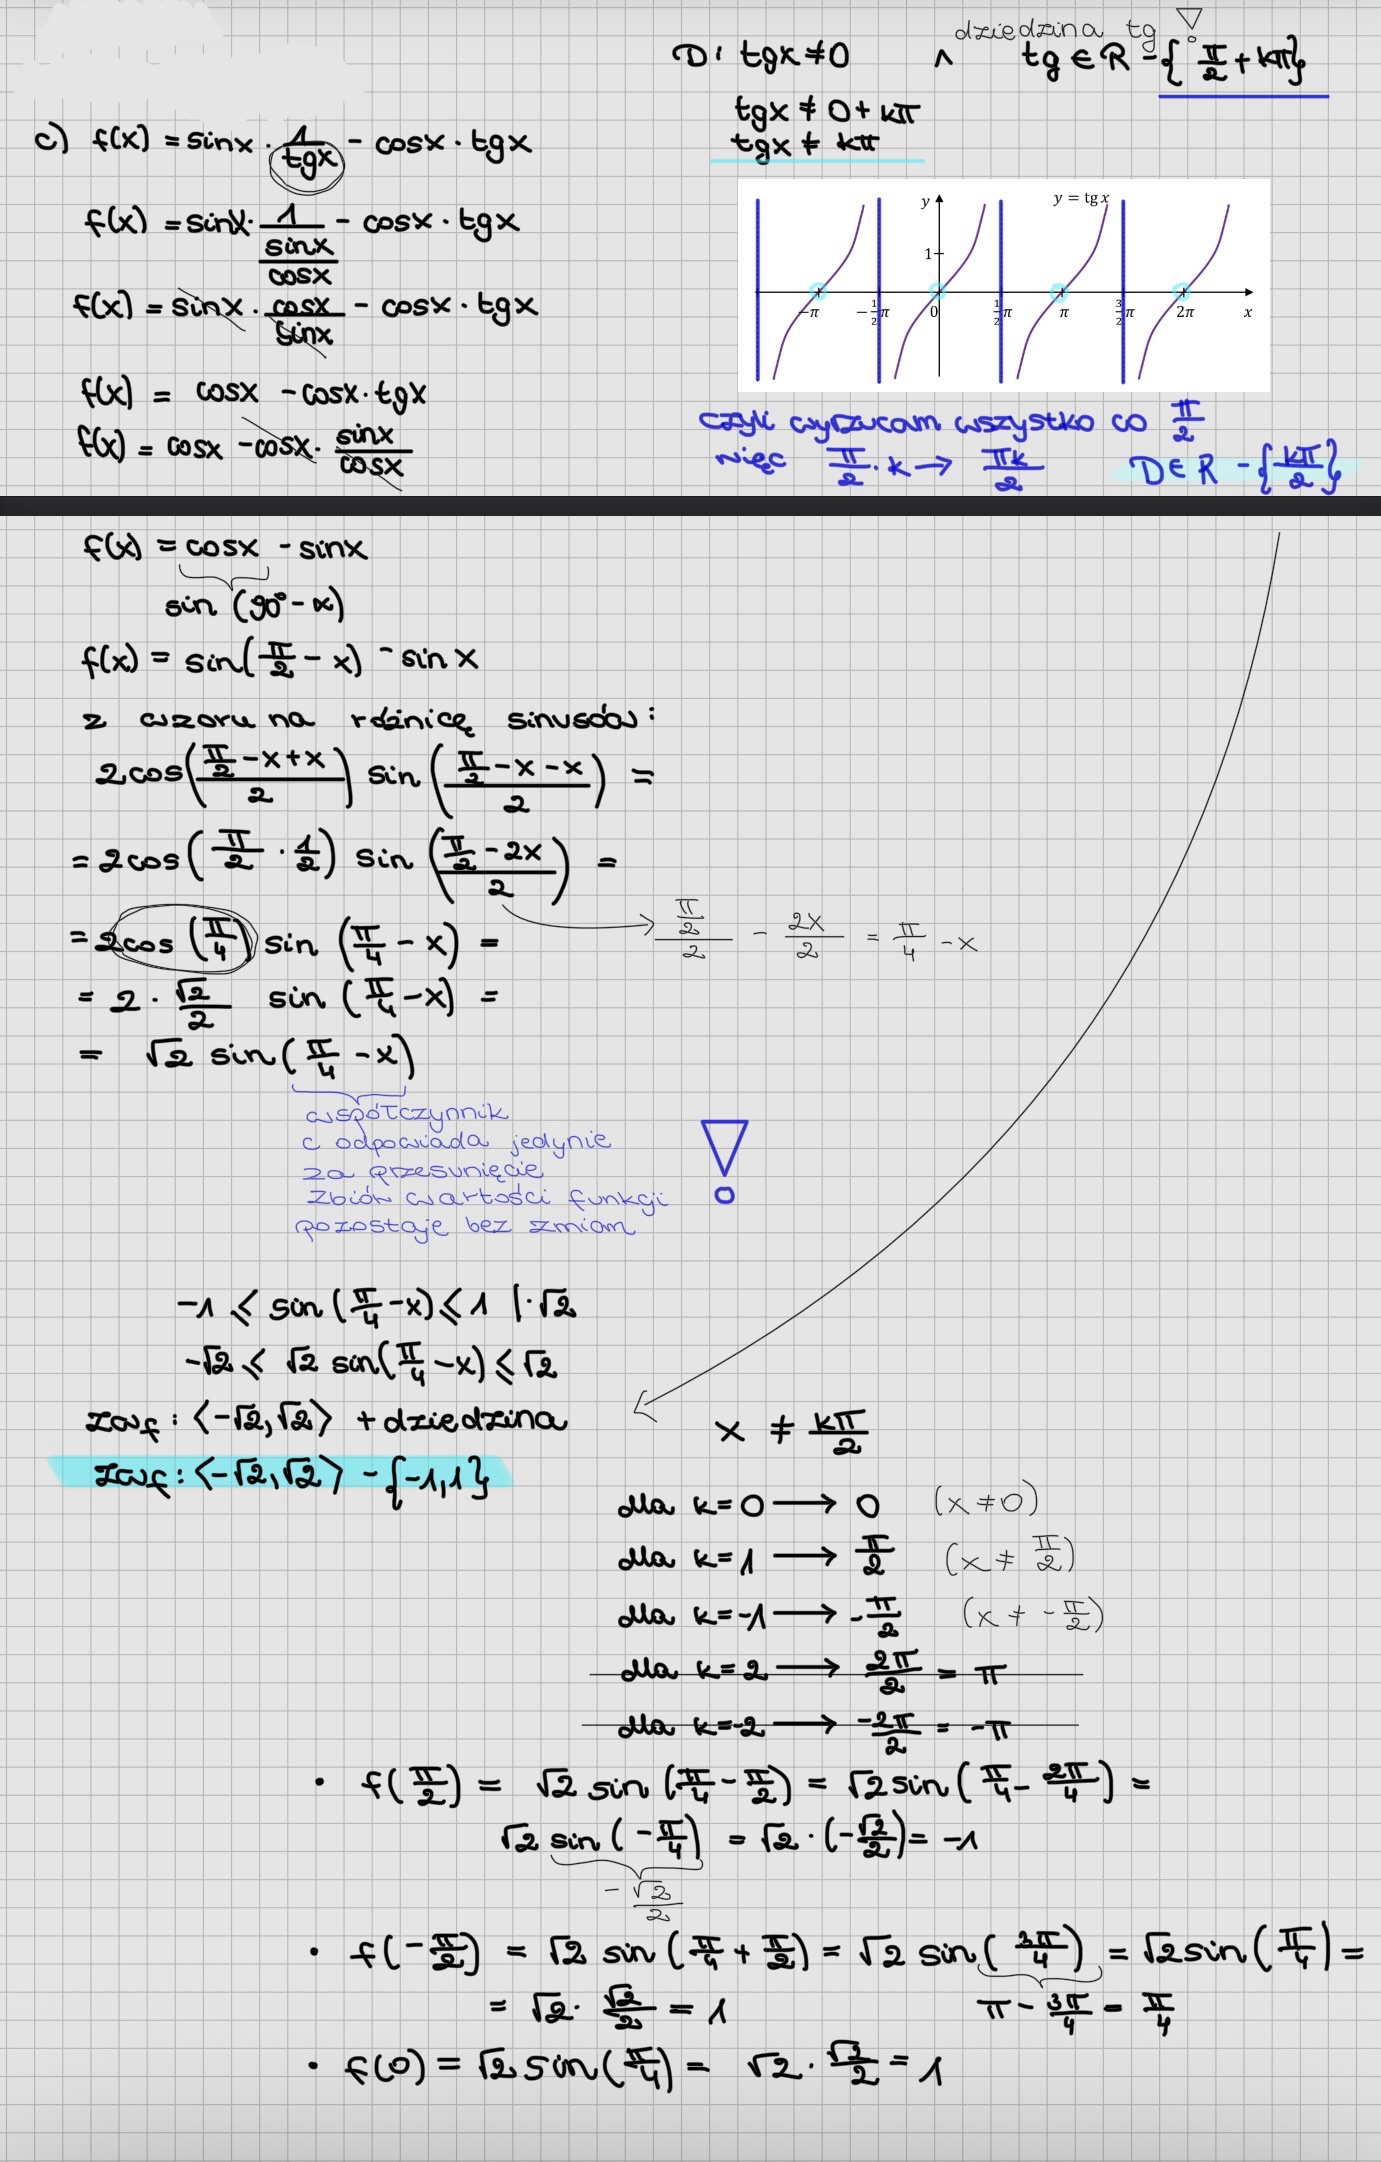 dziedzina tg !
D: tgx ≠ 0 ∧ tg ∈ R - {π/2 + kπ}
tgx ≠ 0 + kπ
tgx ≠ kπ
c) f(x) = sinx · 1/tgx - cosx · tgx
f(x) = sinx · 1/(sinx/cosx) - cosx · tgx
f(x) = sinx · cosx/sinx - cosx · tgx
f(x) = cosx - cosx · tgx
f(x) = cosx - cosx · sinx/cosx
y y = tg x
1
-π -1/2π 0 1/2π π 3/2π 2π x
czyli wyrzucam wszystko co π/2
więc π/2 · k → πk/2 D ∈ R - {kπ/2}
f(x) = cosx - sinx
sin (90° - x)
f(x) = sin(π/2 - x) - sin x
z wzoru na różnicę sinusów:
2cos((π/2 - x + x)/2) sin((π/2 - x - x)/2) =
= 2cos(π/2 · 1/2) sin((π/2 - 2x)/2) =
= 2cos(π/4) sin(π/4 - x) = (π/2)/2 - 2x/2 = π/4 - x
= 2 · √2/2 sin(π/4 - x) =
= √2 sin(π/4 - x)
współczynnik
c odpowiada jedynie
za przesunięcie
Zbiór wartości funkcji
pozostaje bez zmian
!
-1 ⩽ sin(π/4 - x) ⩽ 1 |·√2
-√2 ⩽ √2 sin(π/4 - x) ⩽ √2
zwf: ⟨-√2, √2⟩ + dziedzina
zwf: ⟨-√2, √2⟩ - {-1, 1}
x ≠ kπ/2
dla k = 0 → 0 (x ≠ 0)
dla k = 1 → π/2 (x ≠ π/2)
dla k = -1 → -π/2 (x ≠ -π/2)
dla k = 2 → 2π/2 = π
dla k = -2 → -2π/2 = -π
· f(π/2) = √2 sin(π/4 - π/2) = √2 sin(π/4 - 2π/4) =
√2 sin(-π/4) = √2 · (-√2/2) = -1
-√2/2
· f(-π/2) = √2 sin(π/4 + π/2) = √2 sin(3π/4) = √2 sin(π/4) =
= √2 · √2/2 = 1 π - 3π/4 = π/4
· f(0) = √2 sin(π/4) = √2 · √2/2 = 1